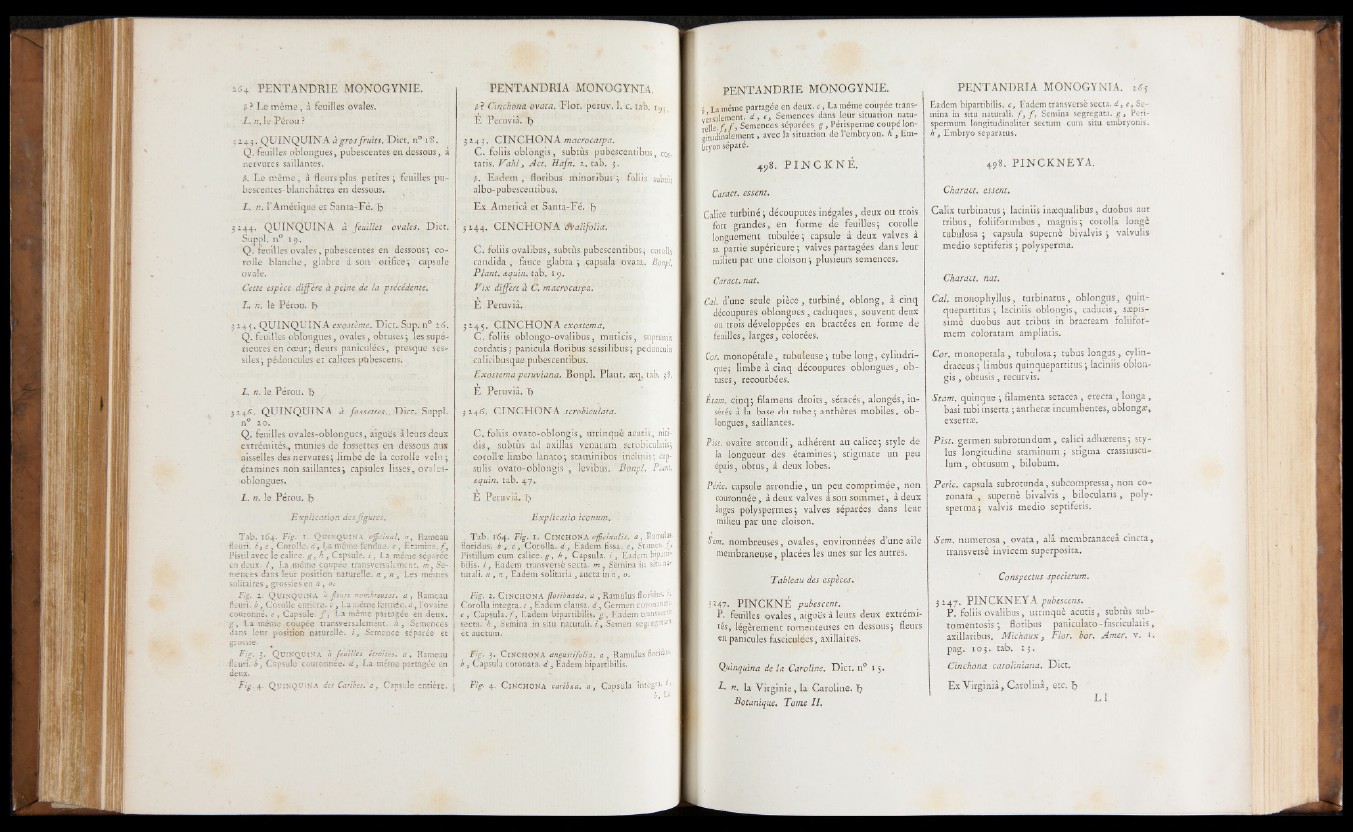 264 PENTANDRIE MONOGYNIE.
β? Le même, à feuilles ovales.
L. n. le Pérou ?
3243. QUINQUINA à gros fruits. Dict. n° 18.
Q. feuilles oblongues, pubescentes en dessous, à
nervures saillantes.
β. Le même, à fleurs plus petites ; feuilles pu-
bescentes-blanchâtres en dessous.
L. n. l'Amérique et Santa-Fé. ♄
3244. QUINQUINA à feuilles ovales. Dict.
Suppl. n° 19.
Q. feuilles ovales, pubescentes en dessous ; co-
rolle blanche, glabre à son orifice ; capsule
ovale.
Cette espèce diffère à peine de la précédente.
L. n. le Pérou. ♄
3245. QUINQUINA exostème. Dict. Sup. n° 26.
Q. feuilles oblongues, ovales, obtuses ; les supé-
rieures en cœur ; fleurs paniculées, presque ses-
siles ; pédoncules et calices pubescens.
L. n. le Pérou. ♄
3246. QUINQUINA à fossettes. Dict. Suppl.
n° 20.
Q. feuilles ovales-oblongues, aiguës à leurs deux
extrémités, munies de fossettes en dessous aux
aisselles des nervures ; limbe de la corolle velu ;
étamines non saillantes ; capsules lisses, ovales-
oblongues.
L. n. le Pérou. ♄
Explication des figures.
Tab. 164. Fig. 1. QUINQUINA officinal. a, Rameau
fleuri. b, c, Corolle. d, La même fendue. e, Etamine. f,
Pistil avec le calice. g, h, Capsule. i, La même séparée
en deux. l, La même coupée transversalement. m, Se-
mences dans leur position naturelle. n, n, Les mêmes
solitaires, grossies en n, o.
Fig. 2. QUINQUINA à fleurs nombreuses. a, Rameau
fleuri. b, Corolle entière. c, La même fermée. d, l'ovaire
couronné. e, Capsule. f, La même partagée en deux.
g, La même coupée transversalement. h, Semences
dans leur position naturelle. i, Semence séparée et
grossie.
Fig. 3. QUINQUINA à feuilles étroites. a, Rameau
fleuri. b, Capsule couronnée. d, La même partagée en
deux.
Fig. 4. QUINQUINA des Caribes. a, Capsule entière.
PENTANDRIA MONOGYNIA.
β? Cinchona ovata. Flor. peruv. l. c. tab. 195.
È Peruviâ. ♄
3243. CINCHONA macrocarpa.
C. foliis oblongis, subtùs pubescentibus, cos-
tatis. Vahl, Act. Hafn. 1, tab. 3.
β. Eadem, floribus minoribus ; foliis subtùs
albo-pubescentibus.
Ex Americâ et Santa-Fé. ♄
3244. CINCHONA ovalifolia.
C. foliis ovalibus, subtùs pubescentibus ; corollâ
candida, fauce glabra ; capsula ovata. Bonpl.
Plant. æquin. tab. 19.
Vix differt à C. macrocarpa.
È Peruviâ.
3245. CINCHONA exostema.
C. foliis oblongo-ovalibus, muticis, supremis
cordatis ; panicula floribus sessilibus ; pedunculis
calicibusque pubescentibus.
Exostema peruviana. Bonpl. Plant. æq. tab. 38.
È Peruviâ. ♄
3246. CINCHONA scrobiculata.
C. foliis ovato-oblongis, utrinquè acutis, niti-
dis, subtùs ad axillas venarum scrobiculatis ;
corollæ limbo lanato ; staminibus inclusis ; cap-
sulis ovato-oblongis, levibus. Bonpl. Plant.
æquin. tab. 47.
È Peruviâ. ♄
Explicatio iconum.
Tab. 164. Fig. 1. CINCHONA officinalis. a, Ramulus
floridus. b, c, Corolla. d, Eadem fissa. e, Stamen. f,
Pistillum cum calice. g, h, Capsula. i, Eadem biparti-
bilis. l, Eadem transversè secta. m, Semina in situ na-
turali. n, n, Eadem solitaria, aucta in n, o.
Fig. 2. CINCHONA floribunda. a, Ramulus floridus. b,
Corolla integra. c, Eadem clausa. d, Germen coronatum.
e, Capsula. f, Eadem bipartibilis. g, Eadem transversè
secta. h, Semina in situ naturali. i, Semen segregatum
et auctum.
Fig. 3. CINCHONA angustifolia. a, Ramulus floridus.
b, Capsula coronata. d, Eadem bipartibilis.
Fig. 4. CINCHONA caribæa. a, Capsula integra.
b, La
PENTANDRIE MONOGYNIE.
b, La même partagée en deux. c, La même coupée trans-
versalement. d, e, Semences dans leur situation natu-
relle. f, f, Semences séparées. g, Périsperme coupé lon-
gitudinalement, avec la situation de l'embryon. h, Em-
bryon séparé.
498. PINCKNÉ.
Caract. essent.
Calice turbiné ; découpures inégales, deux ou trois
fort grandes, en forme de feuilles ; corolle
longuement tubulée ; capsule à deux valves à
sa partie supérieure ; valves partagées dans leur
milieu par une cloison ; plusieurs semences.
Caract. nat.
Cal. d'une seule pièce, turbiné, oblong, à cinq
découpures oblongues, caduques, souvent deux
ou trois développées en bractées en forme de
feuilles, larges, colorées.
Cor. monopétale, tubuleuse ; tube long, cylindri-
que ; limbe à cinq découpures oblongues, ob-
tuses, recourbées.
Étam. cinq ; filamens droits, sétacés, alongés, in-
sérés à la base du tube ; anthères mobiles, ob-
longues, saillantes.
Pist. ovaire arrondi, adhérent au calice ; style de
la longueur des étamines ; stigmate un peu
épais, obtus, à deux lobes.
Péric. capsule arrondie, un peu comprimée, non
couronnée, à deux valves à son sommet, à deux
loges polyspermes ; valves séparées dans leur
milieu par une cloison.
Sem. nombreuses, ovales, environnées d'une aîle
membraneuse, placées les unes sur les autres.
Tableau des espèces.
3247. PINCKNÉ pubescent.
P. feuilles ovales, aiguës à leurs deux extrémi-
tés, légèrement tomenteuses en dessous ; fleurs
en panicules fasciculées, axillaires.
Quinquina de la Caroline. Dict. n° 15.
L. n. la Virginie, la Caroline. ♄
Botanique. Tome II.
PENTANDRIA MONOGYNIA. 265
Eadem bipartibilis. c, Eadem transversè secta. d, e, Se-
mina in situ naturali. f, f, Semina segregata. g, Peri-
spermum longitudinaliter sectum cum situ embryonis.
h, Embryo separatus.
498. PINCKNEYA.
Charact. essent.
Calix turbinatus ; laciniis inæqualibus, duobus aut
tribus, foliiformibus, magnis ; corolla longè
tubulosa ; capsula supernè bivalvis ; valvulis
medio septiferis ; polysperma.
Charact. nat.
Cal. monophyllus, turbinatus, oblongus, quin-
quepartitus ; laciniis oblongis, caducis, sæpis-
simè duobus aut tribus in bracteam foliifor-
mem coloratam ampliatis.
Cor. monopetala, tubulosa ; tubus longus, cylin-
draceus ; limbus quinquepartitus ; laciniis oblon-
gis, obtusis, recurvis.
Stam. quinque ; filamenta setacea, erecta, longa,
basi tubi inserta ; antheræ incumbentes, oblongæ,
exsertæ.
Pist. germen subrotundum, calici adhærens ; sty-
lus longitudine staminum ; stigma crassiuscu-
lum, obtusum, bilobum.
Peric. capsula subrotunda, subcompressa, non co-
ronata, supernè bivalvis, bilocularis, poly-
sperma ; valvis medio septiferis.
Sem. numerosa, ovata, alâ membranaceâ cincta,
transversè invicem superposita.
Conspectus specierum.
3247. PINCKNEYA pubescens.
P. foliis ovalibus, utrinquè acutis, subtùs sub-
tomentosis ; floribus paniculato-fasciculatis,
axillaribus. Michaux, Flor. bor. Amer. v. 1.
pag. 103. tab. 13.
Cinchona caroliniana. Dict.
Ex Virginiâ, Carolinâ, etc. ♄
Ll